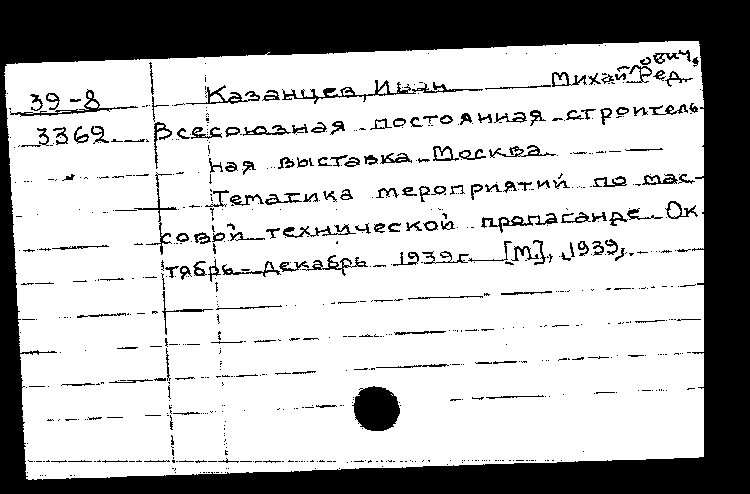 39-8 Казанцев, Иван Михайлович, Ред.
3369. Всесоюзная постоянная строитель-
ная выставка. Москва.
Тематика мероприятий по мас-
совой технической пропаганде. Ок-
тябрь-декабрь 1939 г. [М.], 1939,.